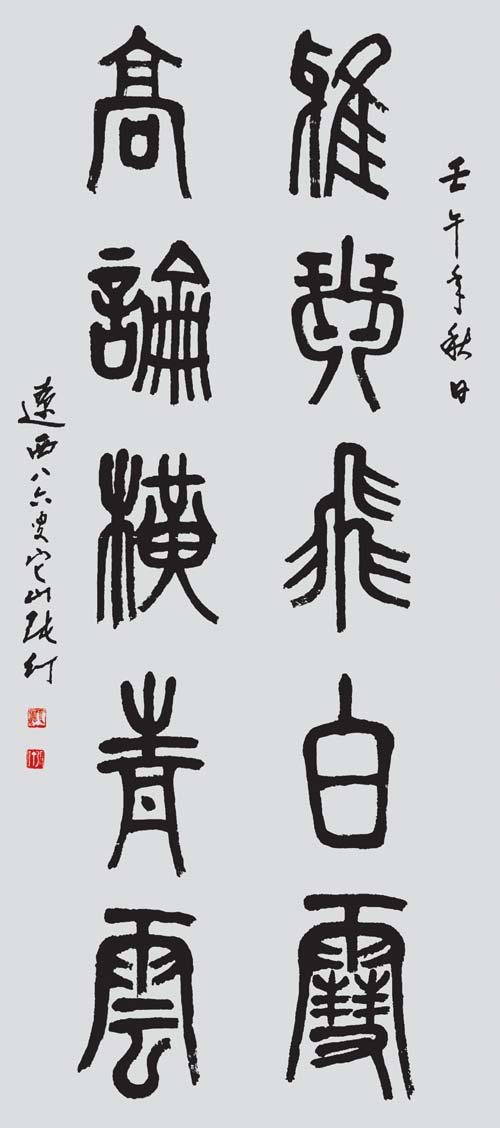 壬午年秋日
雅琴飛白雪
高論橫青雲
遼西八六叟它山張仃